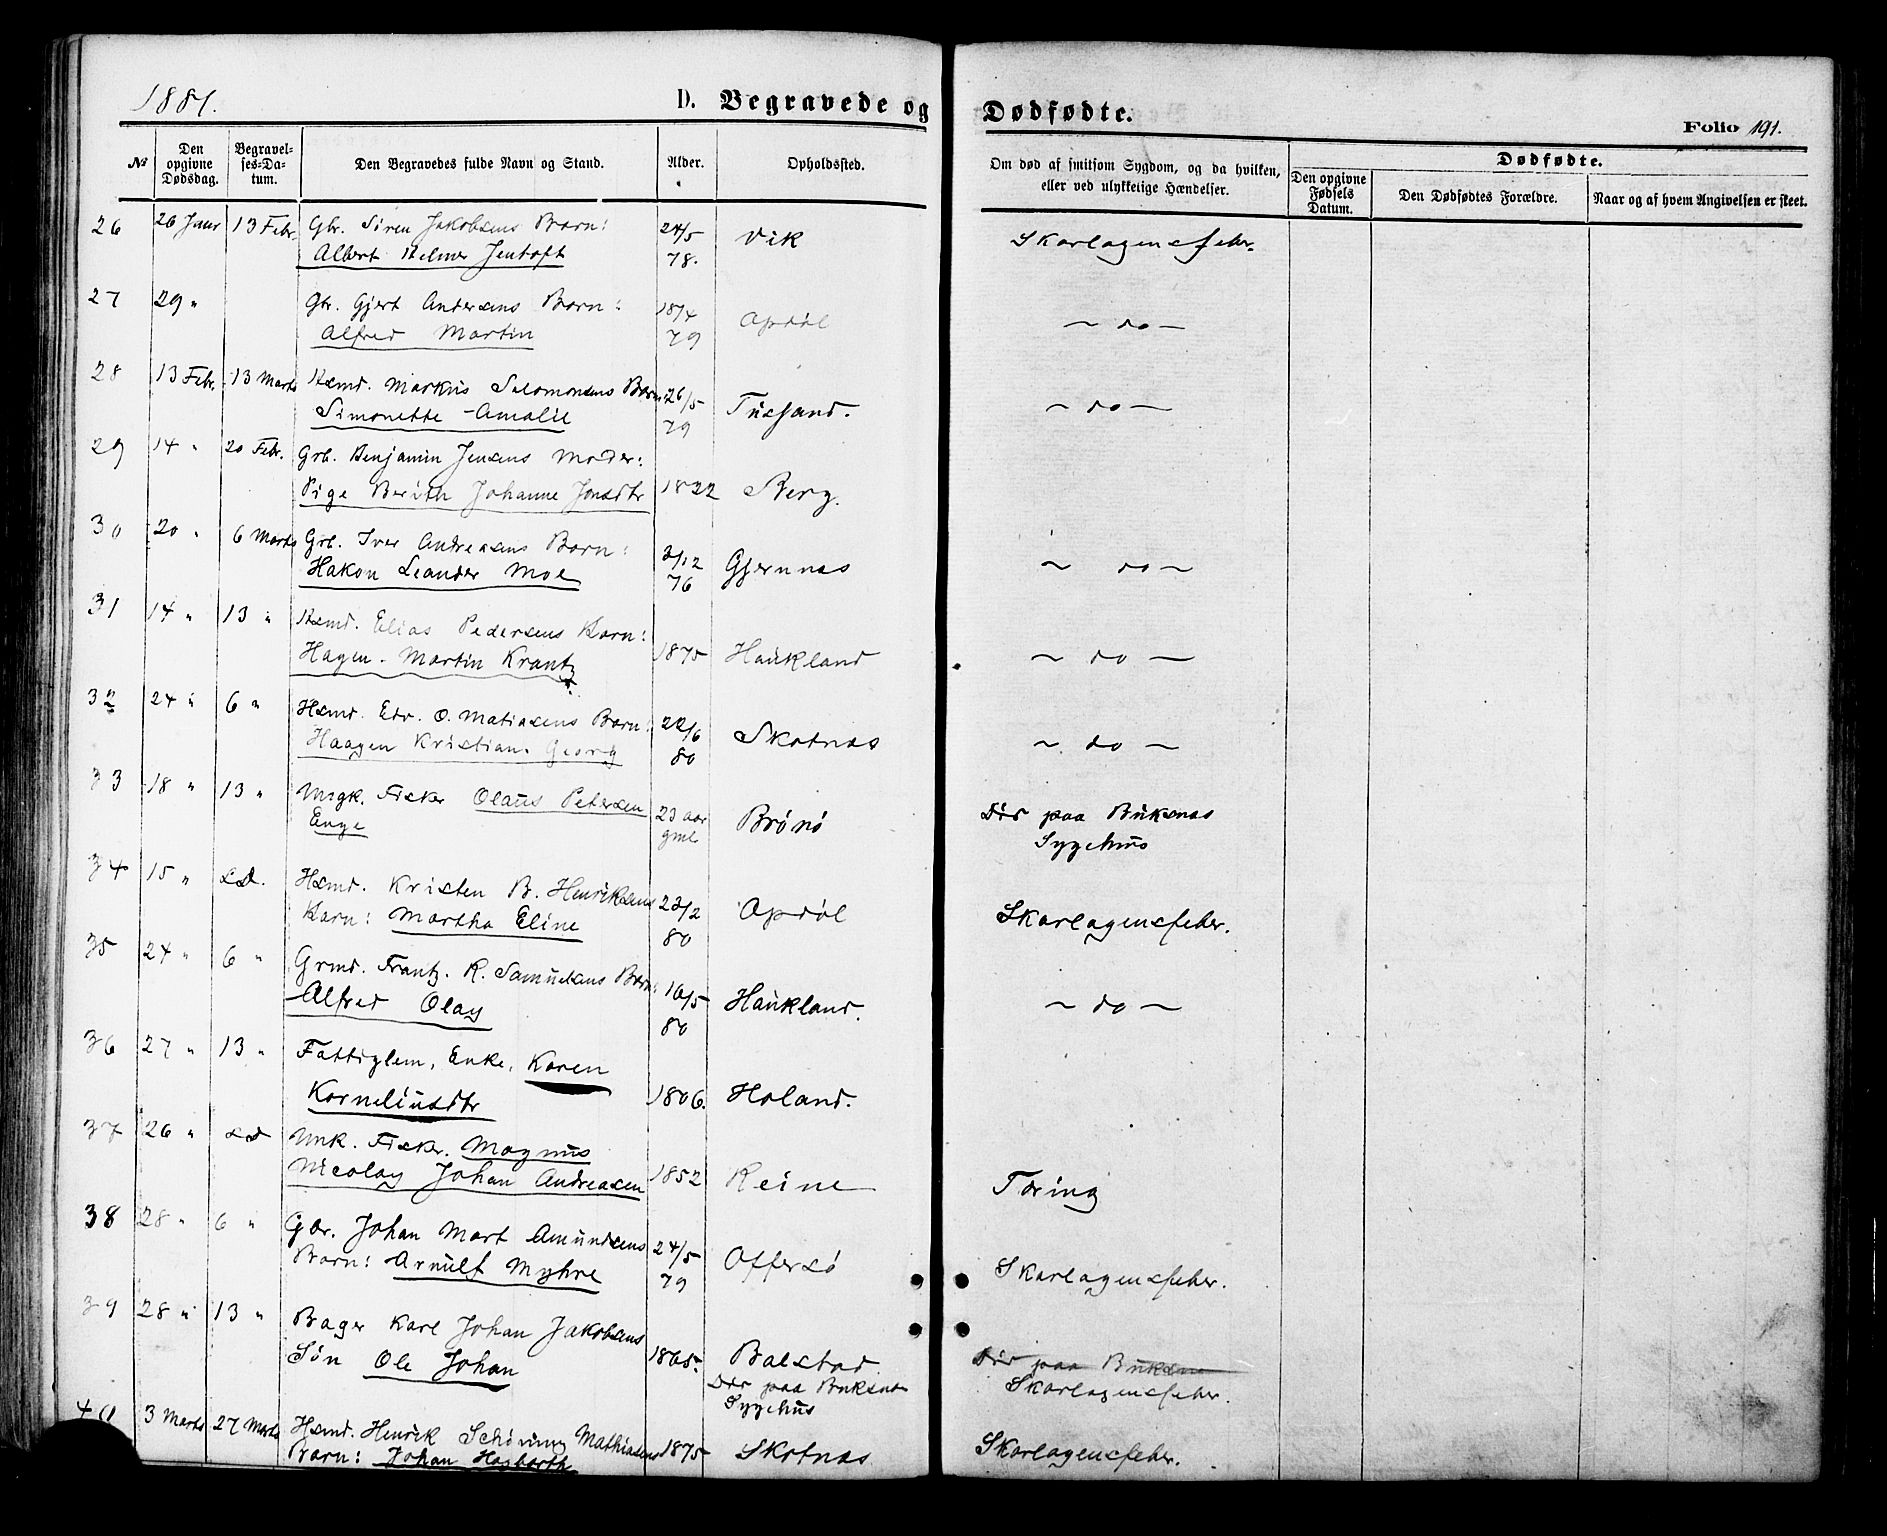 1881.
D. Begravede og Dødfødte.
Folio 191.
№
Den opgivne Dødsdag.
Begravelses-Datum.
Den Begravedes fulde Navn og Stand.
Alder.
Opholdssted.
Om død af smitsom Sygdom, og da hvilken, eller ved ulykkelige Hændelser.
Dødfødte.
Den opgivne Fødsels Datum.
Den Dødfødtes Forældre.
Naar og af hvem Angivelsen er skeet.
26 26 Janr 13 Febr. Gbr. Sören Jakobsens Barn: 24/5 Vik Skarlagensfeber.
Albert Helmer Jentoft 78.
27 29 " Gbr. Gjert Andersens Barn: 18/4 Opdøl ~ do ~
Alfred Martin 79
28 13 Febr. 13 Marts Hsmd. Markus Salomonsens Barn 26/5 Tussand. ~ do ~
Simonette Amalie 79
29 14 " 20 Febr. Grb. Benjamin Jensens Moder:
Pige Berith Johanne Jonsdtr 1822 Berg.
30 20 " 6 Marts Grb. Iver Andreasens Barn: 3/12 Gjernnas ~ do ~
Hakon Leander Moe 76
31 14 " 13 " Hsmd. Elias Pedersens Barn:
Hagen Martin Krantz 1875 Haukland ~ do ~
32 24 " 6 " Hsmd. Edv. O. Matiasens Barn: 22/6 Skotnas ~ do ~
Haagen Kristian Georg 80
33 18 " 13 " Ungk. Fisker Olaus Petersen 23 aar Brönö Dör paa Buksnas
Enge gml Sygehus
34 15 " sd. Hsmd. Kristen B. Henriksens 23/2 Opdöl Skarlagensfeber.
Barn: Martha Eline 80
35 24 " 6 " Grmd. Frantz R. Samuelsens Barn: 16/5 Haukland. ~ do ~
Alfred Olay 80
36 27 " 13 " Fattiglem, Enke, Karen
Korneliusdtr 1806. Holand.
37 26 " sd Unk. Fisker. Magnus
Nicolay Johan Andreasen 1852 Reine Tæring
38 28 " 6 " Gbr. Johan Mart Amundsens 24/5 Offersö Skarlagensfeber.
Barn: Arnulf Myhre 79
39 28 " 13 " Bager Karl Johan Jakobsens
Sön Ole Johan 1865. Balstad Dör paa Buksna
Dör paa Buksnas Skarlagensfeber.
Sygehus
40 3 Marts 27 Marts Hsmd. Henrik Schöning Mathiasens 1875 Skotnas Skarlagensfeber.
Barn: Johan Hagbarth